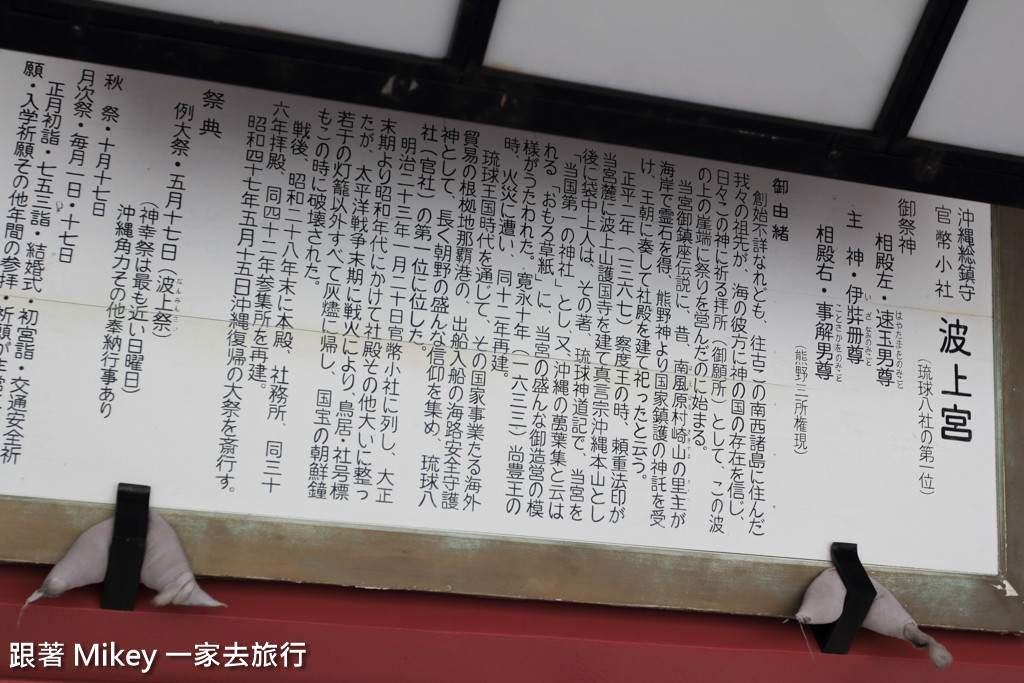 沖縄総鎮守
官幣小社 波上宮
（琉球八社の第一位）
御祭神
相殿左・速玉男尊
はやたまをのみこと
主神・伊弉冊尊
いざなみのみこと
相殿右・事解男尊
ことさかをのみこと
（熊野三所権現）
御由緒
創始不詳なれども、往古この南西諸島に住んだ
我々の祖先が、海の彼方に神の国の存在を信じ、
日々この神に祈る拝所（御願所）として、この波
の上の崖端に祭りを営んだのに始まる。
当宮御鎮座伝説に、昔、南風原村崎山の里主が
海岸で霊石を得、熊野神より国家鎮護の神託を受
け、王朝に奏して社殿を建て祀ったと云う。
正平二年（一三六七）察度王の時、頼重法印が
当宮麓に波上山護国寺を建て真言宗沖縄本山とし
後に袋中上人は、その著、琉球神道記で、当宮を
「当国第一の神社」とし、又、沖縄の萬葉集と云は
れる「おもろ草紙」に、当宮の盛んな御造営の模
様がうたわれた。寛永十年（一六三三）尚豊王の
時、火災に遭い、同十二年再建。
琉球王国時代を通じて、その国家事業たる海外
貿易の根拠地那覇港の、出船入船の海路安全守護
神として、長く朝野の盛んな信仰を集め、琉球八
社（官社）の第一位に位した。
明治二十三年一月二十日官幣小社に列し、大正
末期より昭和年代にかけて社殿その他大いに整っ
たが、太平洋戦争末期に戦火により、鳥居・社号標
若干の灯籠以外すべて灰燼に帰し、国宝の朝鮮鐘
もこの時に破壊された。
戦後、昭和二十八年末に本殿、社務所、同三十
六年拝殿、同四十二年参集所を再建。
昭和四十七年五月十五日沖縄復帰の大祭を斎行す。
祭典
例大祭・五月十七日（波上祭）
なんみんさい
（神幸祭は最も近い日曜日）
沖縄角力その他奉納行事あり
秋 祭・十月十七日
月次祭・毎月一日・十七日
正月初詣・七五三詣・結婚式・初宮詣・交通安全祈
願・入学祈願その他年間の参拝・祈願が
跟著 Mikey 一家去旅行